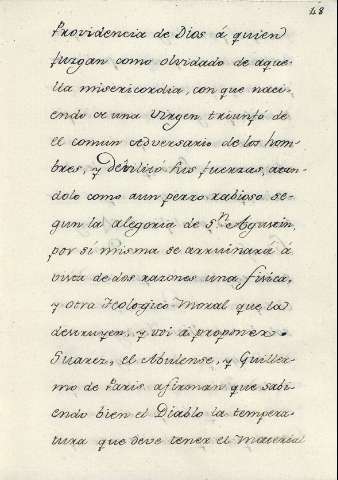 48
Providencia de Dios á quien
juzgan como olvidado de aque-
lla misericordia, con que naci-
endo de una Virgen triunfó de
el comun adversario de los hom-
bres, y devilitó sus fuerzas, atan-
dolo como aun perro rabioso se-
gun la alegoria de Sn. Agustin,
por sí misma se arruinará á
vista de dos razones una fisica,
y otra Teologico-Moral que la
destruyen, y voi a proponer.
Suarez, el Abulense, y Guiller-
mo de Paris afirman que sabi-
endo bien el Diablo la tempera-
tura que deve tener el Material